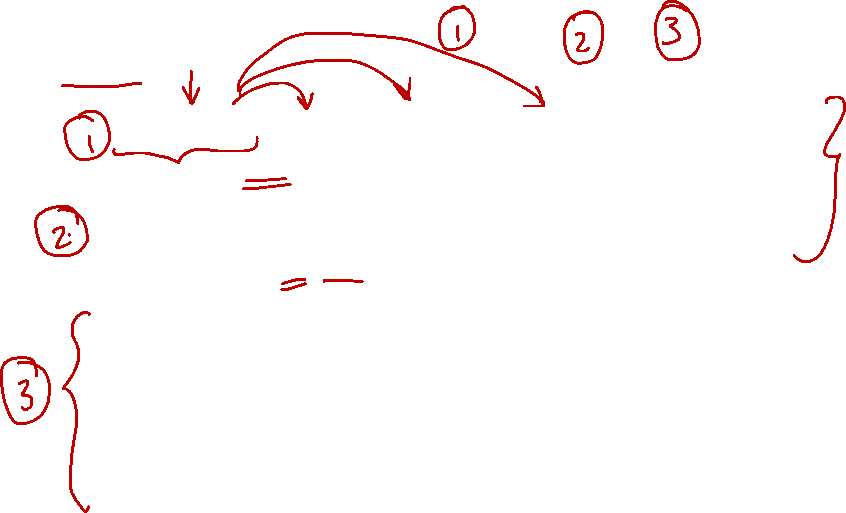 1 2 3
1
=
2
= —
3 {